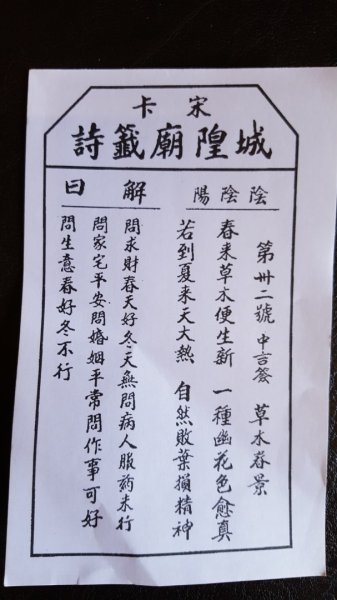 宋卡
城隍廟籤詩
陰陰陽
解曰
第卅二號 中言簽 草木春景
春来草木便生新 一種幽花色愈真
若到夏来天大熱 自然敗葉損精神
問求財春天好冬天無問病人服药未行
問家宅平安問婚姻平常問作事可好
問生意春好冬不行